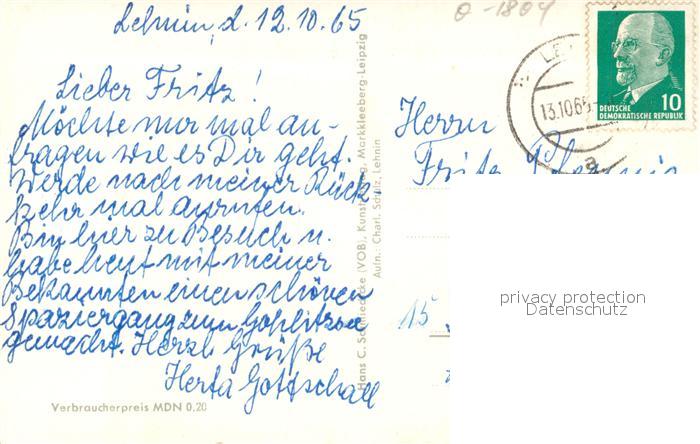 Lehnin, d. 12.10.65
Lieber Fritz!
Möchte nur mal an-
fragen wie es Dir geht.
Werde nach meiner Rück-
kehr mal anrufen.
Bin hier zu Besuch u.
habe heut mit meiner
Bekannten einen schönen
Spaziergang zum Gohlitzsee
gemacht. Herzl. Grüße
Herta Gottschall
Verbraucherpreis MDN 0,20
Hans C. Schmiedicke (VOB), Kunstverlag, Markkleeberg-Leipzig
Aufn. Charl. Scholz, Lehnin
0-1804
13.10.65
a
10
DEUTSCHE
DEMOKRATISCHE REPUBLIK
Herrn
Fritz
15
privacy protection
Datenschutz